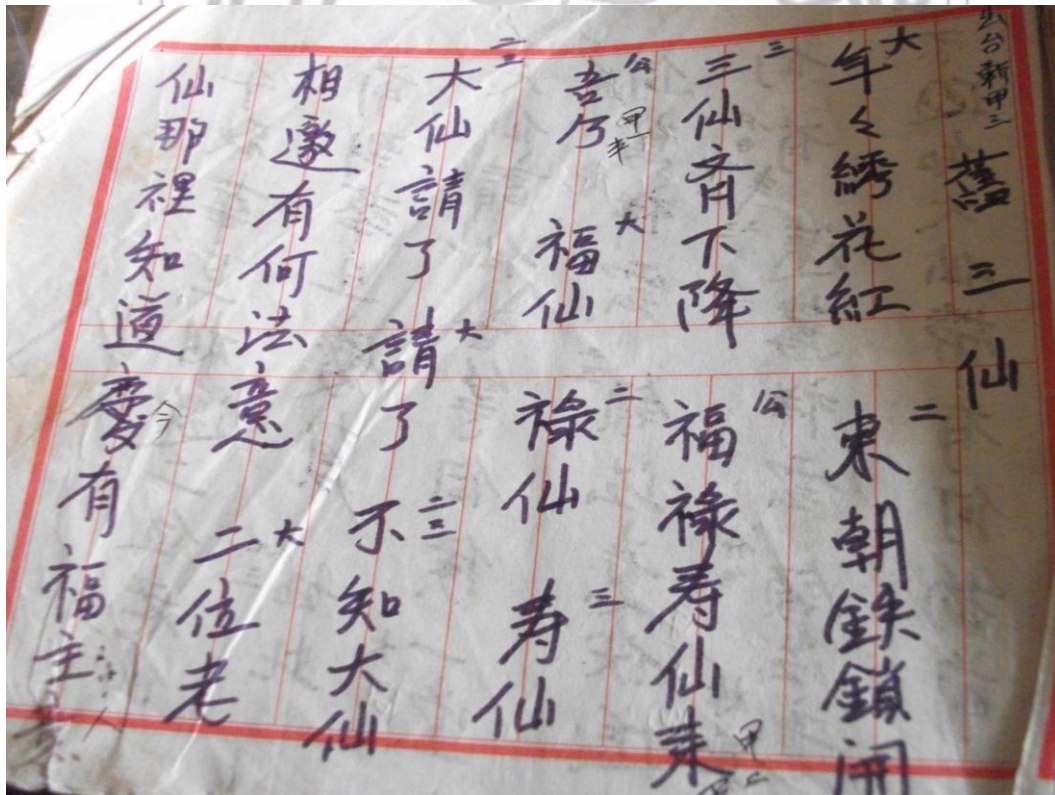 出台新甲三
舊三仙
大年々綉花紅 二東朝鉄鎖開
三三仙斉下降 公福祿寿仙来
公吾乃 甲一 大福仙 二祿仙 三寿仙
二三大仙請了 大請了 二三不知大仙
相邀有何法意 大二位老
仙那裡知道慶今有福主